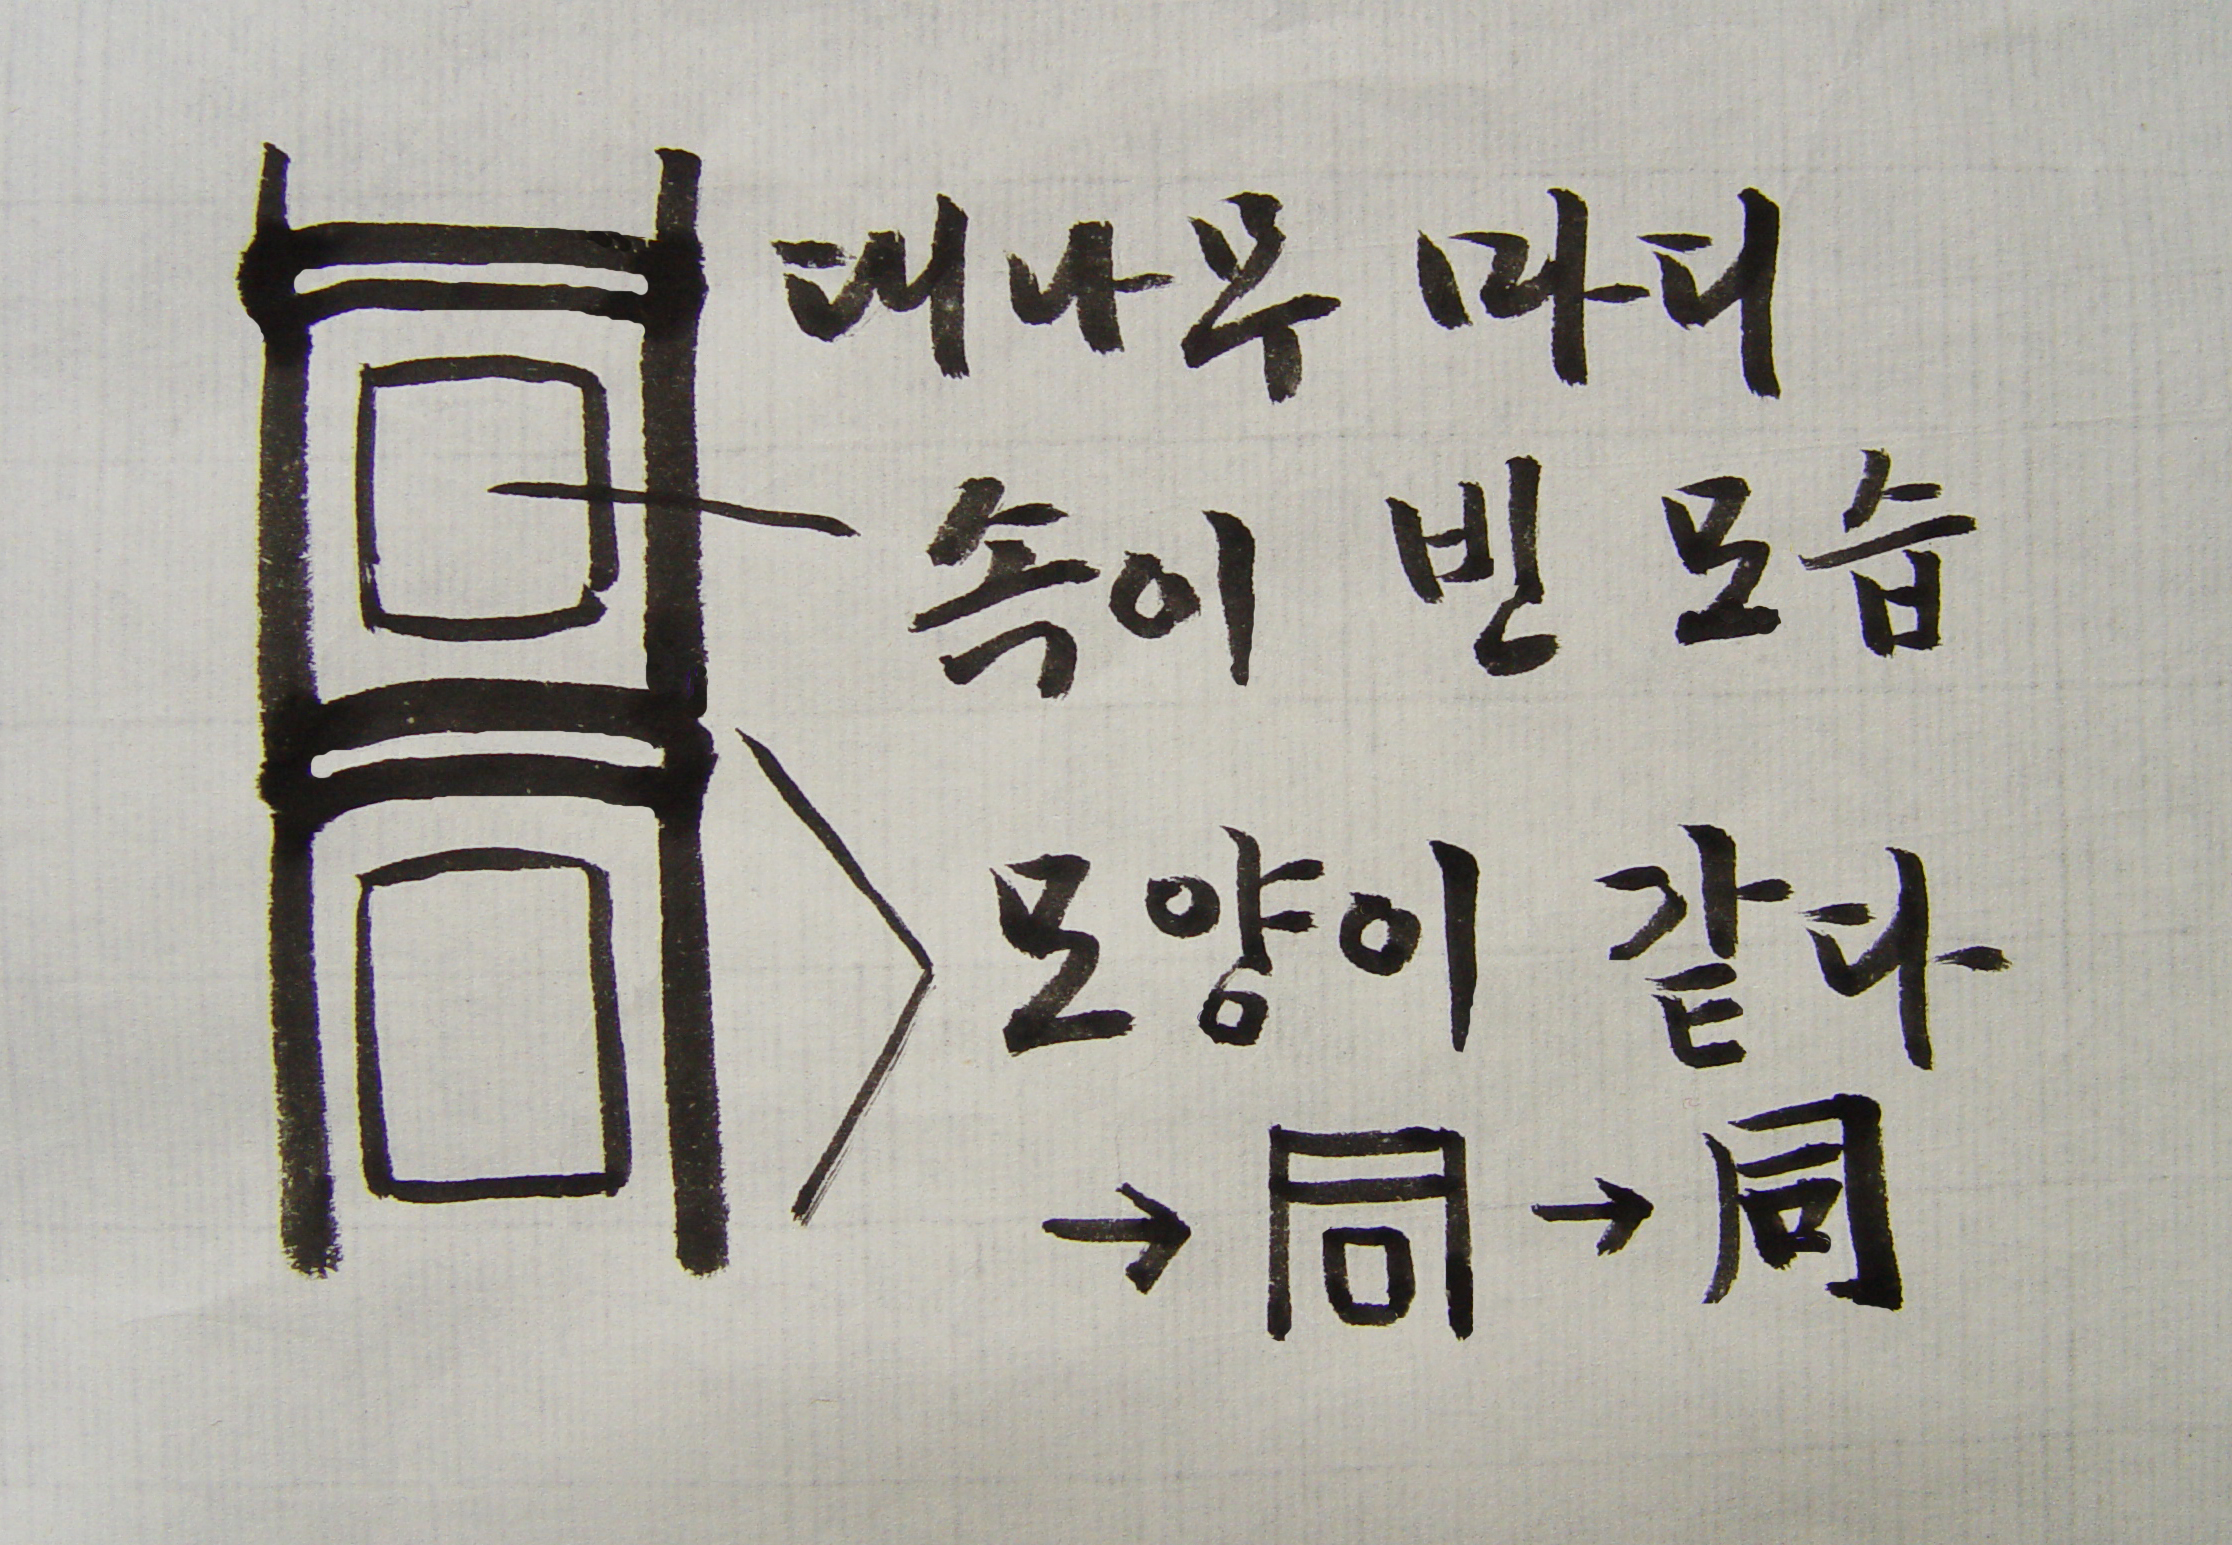 대나무 마디
속이 빈 모습
모양이 같다
→ 同 → 同